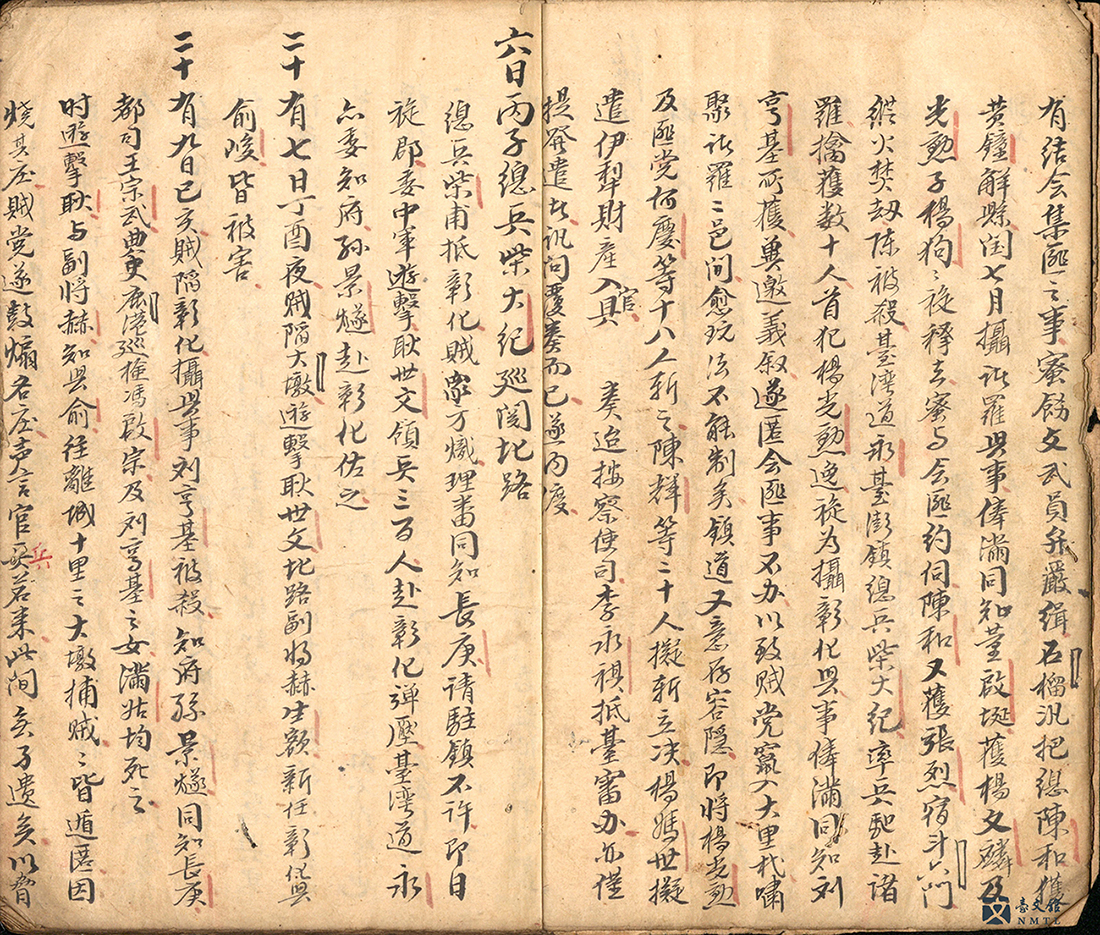 有结会集匪之事蜜飭文武員弁嚴緝石榴汛把緦陳和獲
黄鐘解縣闰七月攝诸羅㒷事俸滿同知董啟埏獲楊文麟及
光勲子楊狗〻旋释去蜜与会匪约伺陳和又獲張烈宿斗六门
縱火焚刼陈被殺臺湾道永臺澎鎮總兵柴大紀率兵馳赴诸
羅擒獲数十人首犯楊光勲逸旋为攝彰化㒷事俸滿同知刘
亨基所獲兼邀義叙遂匿会匪事不办以致贼党竄入大里杙嘯
聚诸羅二邑间愈玩法不能制矣鎮道又意存容隱即将楊光勲
及匪党何慶等十八人斬之陳輝等二十人擬斬立决楊媽世擬
遣伊犁財産入官 奏迨按察使司李永祺抵臺審办亦僅
提發遣者讯问覆奏而已遂内渡
六日丙子總兵柴大紀巡阅北路
總兵柴甫抵彰化贼氛方熾理番同知長庚请駐鎮不许即日
旋郡委中軍遊擊耿世文領兵三百人赴彰化弹壓臺湾道永
亦委知府孫景燧赴彰化佐之
二十有七日丁酉夜贼陷大墩遊擊耿世文北路副将赫生額新任彰化㒷
俞峻皆被害
二十有九日已亥贼陷彰化攝㒷事刘亨基被殺知府孫景燧同知長庚
都司王宗武典史鹿港巡檢馮啟宗及刘亨基之女滿姑均死之
时遊擊耿与副将赫知㒷俞往離城十里之大墩捕贼〻皆遁匿因
燒其庄贼党遂鼓煽各庄声言官兵若来此间无孑遺矣以脅
兵
臺文館
NMTL